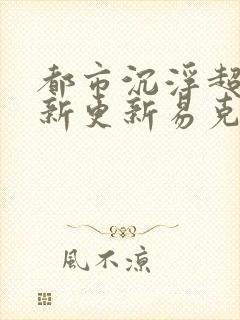 都市沉浮超
新更新易克
風不凉